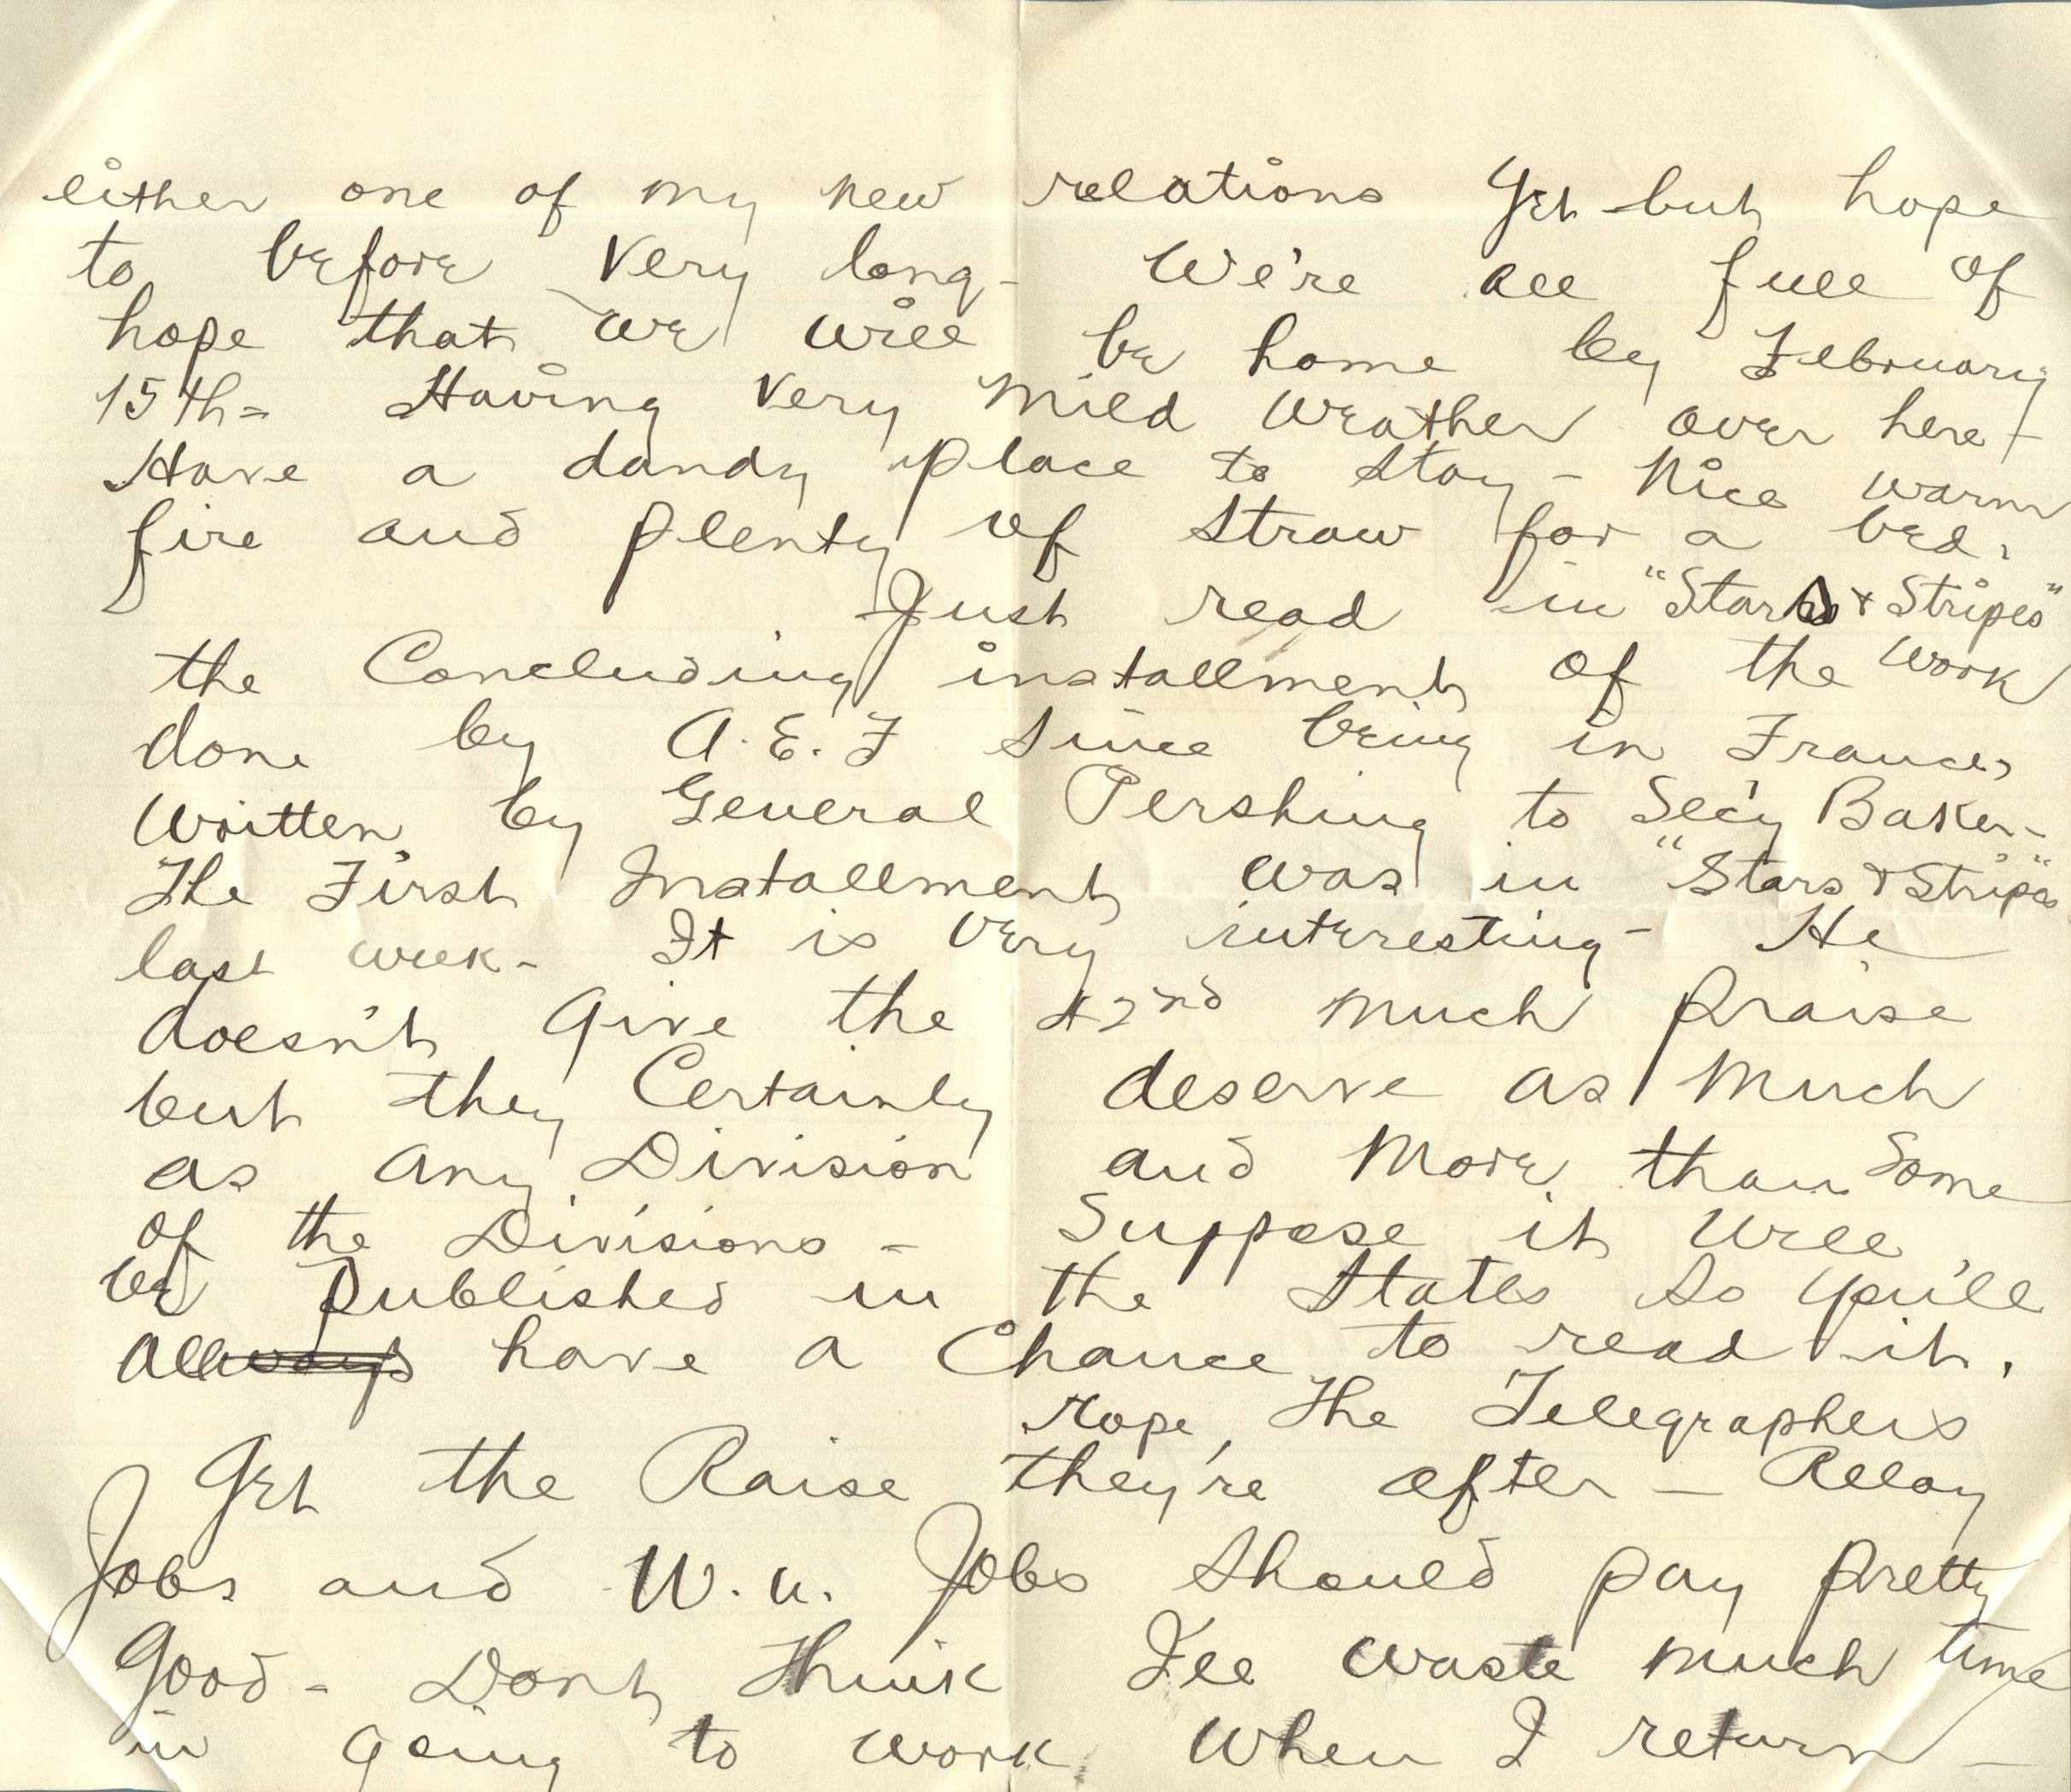 either one of my new relations yet but hope
to before very long - We're all full of
hope that we will be home by February
15th - Having very mild weather over here -
Have a dandy place to stay - Nice warm
fire and plenty of straw for a bed.
Just read in "Stars & Stripes"
the Concluding installment of the work
done by A.E.F since being in France,
written by General Pershing to Sec'y Baker -
The First Installment was in "Stars & Stripes"
last week - It is very interesting - He
doesn't give the 42nd much praise
but they Certainly deserve as much
as any Division and more than some
of the Divisions - Suppose it will
be published in the States so you'll
all ways have a Chance to read it.
Hope the Telegraphers
get the Raise they're after - Relay
Jobs and W.U. Jobs should pay pretty
good - Dont think I'll waste much time
in going to work when I return -